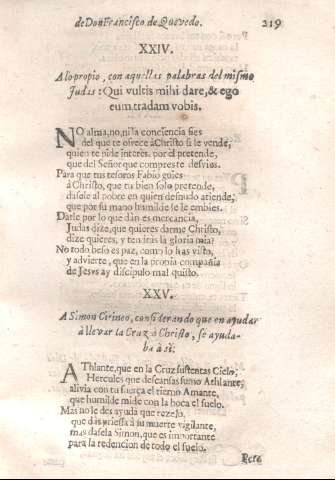 de Don Francisco de Quevedo. 219
XXIV.
A lo propio, con aquellas palabras del mismo
Judas: Qui vultis mihi dare, & ego
eum tradam vobis.
NO alma, no, ni la conciencia fies
del que te ofrece à Christo si le vende,
quien te pide interès, por el pretende,
que del Señor que compreste desvios.
Para que tus tesoros Fabio guies
à Christo, que tu bien solo pretende,
dasele al pobre en quien desnudo atiende,
que por su mano humilde se le embies.
Darle por lo que dàn es mercancia,
Judas dize, que quieres darme Christo,
dize quieres, y tendràs la gloria mia?
No todo beso es paz, como lo has visto,
y advierte, que en la propia compañia
de Jesus ay discipulo mal quisto.
XXV.
A Simon Cirineo, considerando que en ayudar
à llevar la Cruz à Christo, se ayuda-
ba à sì.
AThlante, que en la Cruz sustentas Cielo,
Hercules que descansas sumo Athlante,
alivia con tu fuerça el tierno Amante,
que humilde mide con la boca el suelo.
Mas no le des ayuda que rezelo,
que das priessa à su muerte vigilante,
mas dasela Simon, que es importante
para la redencion de todo el suelo.